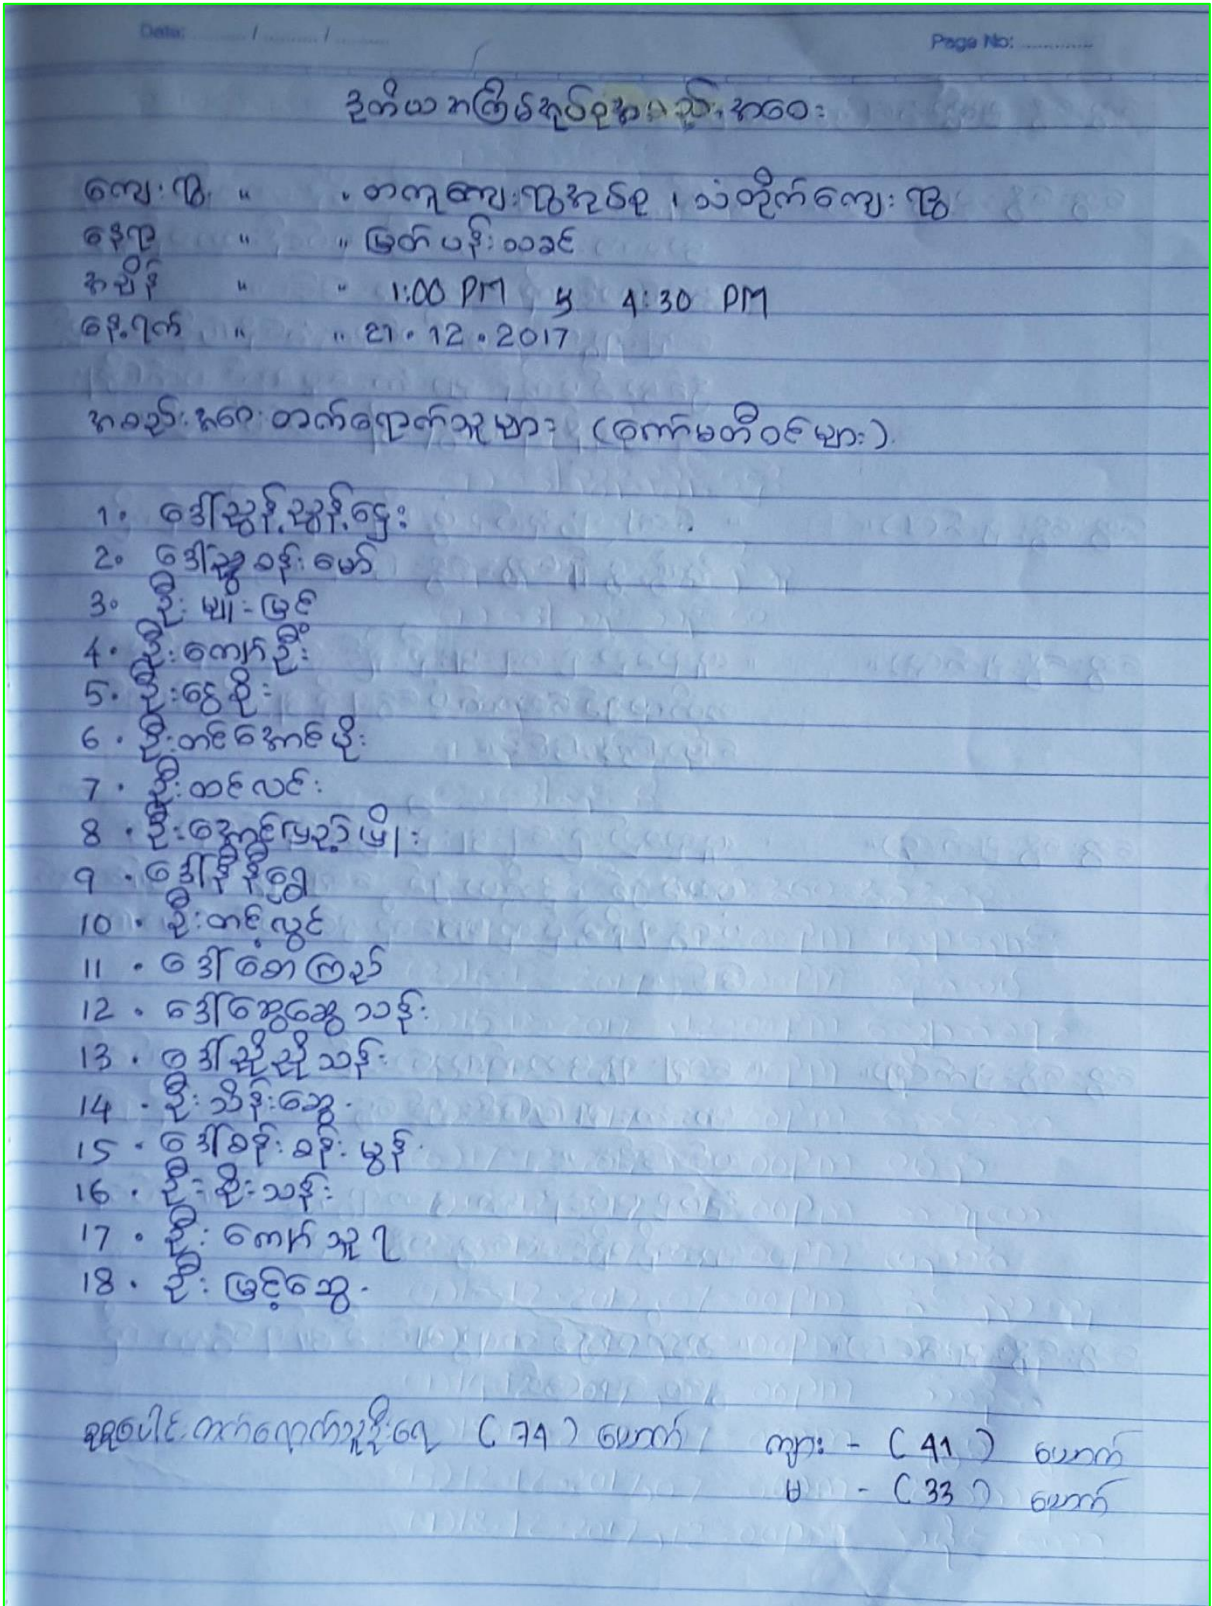 Date: ......... / ......... / ......... Page No: ............
ဒုတိယအကြိမ်အုပ်စုအစည်းအဝေး
ကျေးရွာ " " တကူကျေးရွာအုပ်စု ၊ သံတိုက်ကျေးရွာ
နေရာ " " မြတ်ပန်းသခင်
အချိန် " " 1:00 PM မှ 4:30 PM
နေ့ရက် " " 21.12.2017
အစည်းအဝေးတက်ရောက်သူများ (ကော်မတီဝင်များ)
1. ဒေါ်ညွန့်ညွန့်ဌေး
2. ဒေါ်ညွန့်စန်းမော်
3. ဦးမျိုးမြင့်
4. ဦးကျော်ဦး
5. ဦးငွေစိုး
6. ဦးတင်အောင်မိုး
7. ဦးထင်လင်း
8. ဦးအောင်မြည့်ဖြိုး
9. ဒေါ်နီနီရွှေ
10. ဦးတင့်လွင်
11. ဒေါ်စောကြည်
12. ဒေါ်ဆွေဆွေသန်း
13. ဒေါ်ညိုညိုသန်း
14. ဦးသိန်းဆွေ
15. ဒေါ်စန်းစန်းမွန်
16. ဦးစိုးသန်း
17. ဦးကျော်သူရ
18. ဦးမြင့်ဆွေ
စုစုပေါင်းတက်ရောက်သူဦးရေ (74) ယောက် ကျား - (41) ယောက်
မ - (33) ယောက်